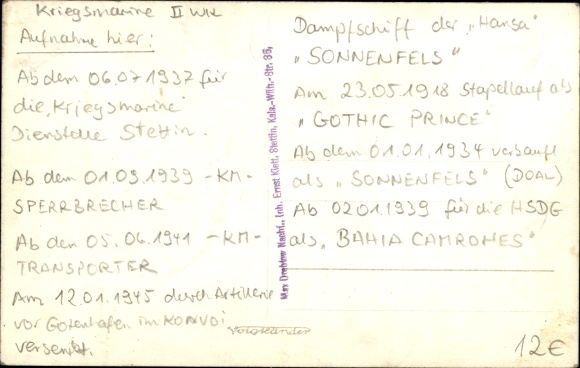 Kriegsmarine II WK
Aufnahme hier:
Ab dem 06.07.1937 für
die „Kriegsmarine"
Dienstelle Stettin.
Ab dem 01.09.1939 -KM-
SPERRBRECHER
Ab den 05.06.1941 -KM-
TRANSPORTER
Am 12.01.1945 durch Artillerie
vor Gotenhafen im KONVOI
versenkt.
Max Dreblow Nachf., Inh. Ernst Klett, Stettin, Kais.-Wilh.-Str. 95,
Voigtländer
Dampfschiff der „Hansa"
„SONNENFELS"
Am 23.05.1918 Stapellauf als
„GOTHIC PRINCE"
Ab dem 01.01.1934 verkauft
als „SONNENFELS" (DOAL)
Ab 02.01.1939 für die HSDG
als „BAHIA CAMRONES"
12€